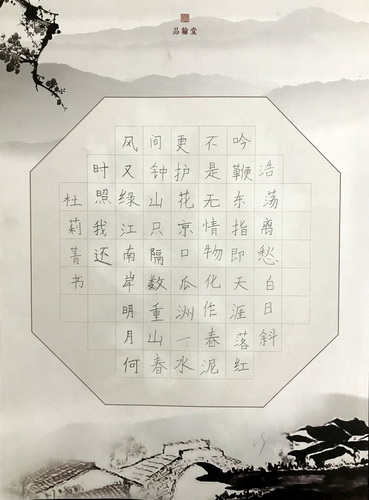 品翰堂
浩荡离愁白日斜
吟鞭东指即天涯落红
不是无情物化作春泥
更护花京口瓜洲一水
间钟山只隔数重山春
风又绿江南岸明月何
时照我还
杜莉菁书